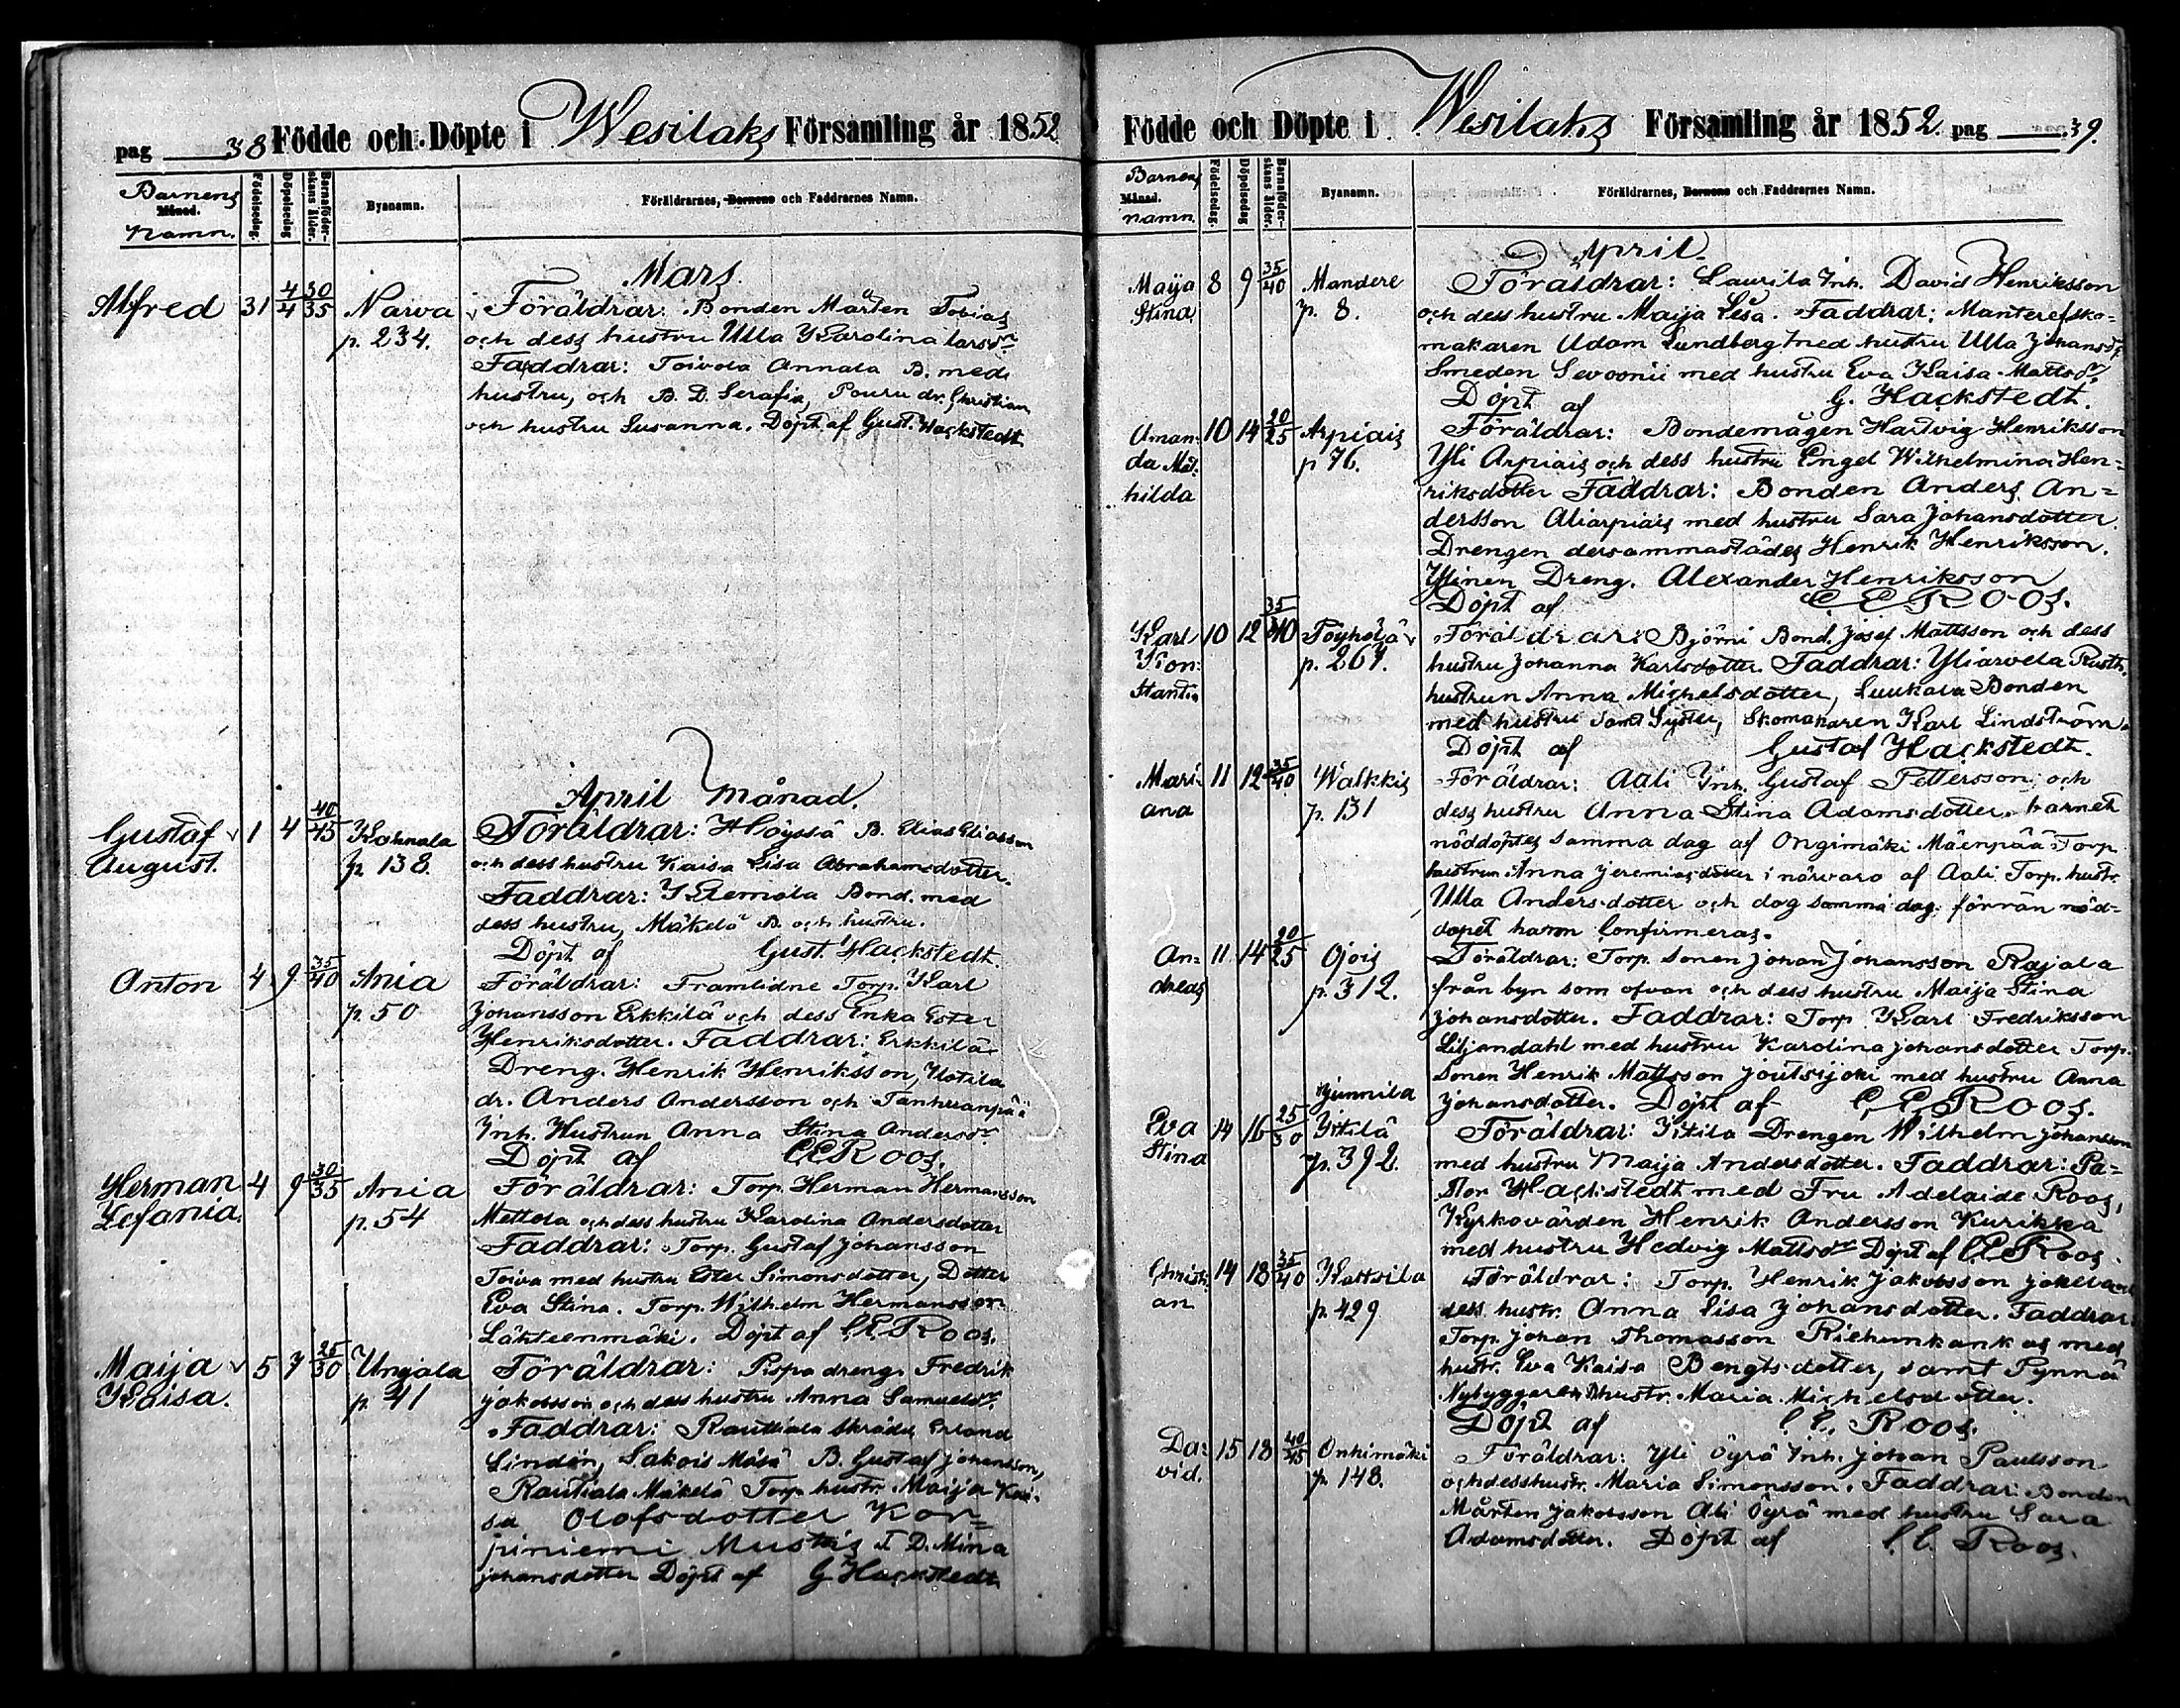 pag 38 Födde och Döpte i Wesilaks Församling år 1852
Barnens Namn. Månad. Födelsedag. Döpelsedag Barnaföderskans ålder. Byanamn. Föräldrarnes, Barnens och Faddrarnes Namn.
Mars.
Alfred 31 4/4 30/35 Narva p. 234. Föräldrar: Bonden Mårten Tobias
och dess hustru Ulla Karolina Larsdr
Faddrar: Toivola Annala B. med
hustru, och B. D. Serafia, Pouru dr. Christian
och hustru Susanna. Döpt af Gust. Hackstedt
April Månad.
Gustaf August. 1 4 40/45 Kohnala p 138. Föräldrar: Höyssä B. Elias Eliasson
och dess hustru Kaisa Lisa Abrahamsdotter.
Faddrar: Klemola Bond. med
dess hustru, Mäkelä B. och hustru.
Döpt af Gust. Hackstedt.
Anton 4 9 35/40 Ania p. 50 Föräldrar: Framlidne Torp. Karl
Johansson Erkkilä och dess Enka Ester
Henriksdotter. Faddrar: Erkkilä
Dreng. Henrik Henriksson, Uotila
dr. Anders Andersson och Tanhuanpää
Inh. Hustrun Anna Stina Andersdr
Döpt af C E Roos.
Herman Zefania 4 9 30/35 Ania p. 54 Föräldrar: Torp. Herman Hermansson
Mettola och dess hustru Karolina Andersdotter
Faddrar: Torp. Gustaf Johansson
Toiva med hustru Ester Simonsdotter, Dotter
Eva Stina. Torp. Wilhelm Hermansson
Lähteenmäki. Döpt af C. E. Roos.
Maija Kaisa. 5 7 25/30 Ungala p. 41 Föräldrar: Ropa dreng. Fredrik
Jakobsson och dess hustru Anna Samuelsdr.
Faddrar: Rautiala Skrädd. Erland
Lindén, Sakois Mäsä B. Gustaf Johansson,
Rautiala Mäkelä Torp. hustr. Maija Kai-
sa Olofsdotter Kor=
piniemi Mustis T. D. Mina
Johansdotter Döpt af G Hackstedt
Födde och Döpte i Wesilaks Församling år 1852. pag 39.
Barnens namn. Månad. Födelsedag. Döpelsedag Barnaföderskans ålder. Byanamn. Föräldrarnes, Barnens och Faddrarnes Namn.
April.
Maija Stina 8 9 35/40 Mandere p. 8. Föräldrar: Laurila Inh. David Henriksson
och dess hustru Maija Lesa. Faddrar: Manterefsko=
makaren Adam Sundberg med hustru Ulla Johansdr
Smeden Sevoonii med hustru Eva Kaisa Mattsdr.
Döpt af G. Hackstedt.
Aman- da Mat- hilda 10 14 20/25 Arpiais p 76. Föräldrar: Bondemågen Hartvig Henriksson
Yli Arpiais och dess hustru Engel Wilhelmina Hen=
riksdotter Faddrar: Bonden Anders An=
dersson Aliarpiais med hustru Sara Johansdotter.
Drengen dersammastädes Henrik Henriksson.
Ylinen Dreng. Alexander Henriksson
Döpt af C E Roos.
Karl Kon- stantin 10 12 35/40 Töyholjä p. 267. Föräldrar: Björni Bond. Josef Mattsson och dess
hustru Johanna Karlsdotter. Faddrar: Yliarvela Rusth.
hustrun Anna Michelsdotter, Luukala Bonden
med hustru samt Syster, Skomakaren Karl Lindström.
Döpt af Gustaf Hackstedt.
Mari- ana 11 12 35/40 Walkkis p. 131 Föräldrar: Aali Inh. Gustaf Pettersson och
dess hustru Anna Stina Adamsdotter. barnet
nöddöptes samma dag af Ongimäki Mäenpää Torp
hustrun Anna Jeremiasdotter i närvaro af Aali Torp. hustr.
Ulla Andersdotter och dog samma dag förrän nöd-
dopet hann Confirmeras.
An- dreas 11 14 20/25 Ojois p. 312. Föräldrar: Torp. Sonen Johan Johansson Rajala
från byn som ofvan och dess hustru Maija Stina
Johansdotter. Faddrar: Torp Karl Fredriksson
Liljendahl med hustru Karolina Johansdotter Torp.
Sonen Henrik Mattsson Joutsijoki med hustru Anna
Johansdotter. Döpt af C. E. Roos.
Eva Stina 14 16 25/30 Junnila Iitilä p. 392. Föräldrar: Iitila Drengen Wilhelm Johansson
med hustru Maija Andersdotter. Faddrar: Pa-
stor Hackstedt med Fru Adelaide Roos,
Kyrkovärden Henrik Andersson Kurikka
med hustru Hedvig Mattsdr Döpt af C. E. Roos.
Christi- an 14 18 35/40 Kattsila p. 429 Föräldrar: Torp. Henrik Jakobsson Jokela och
dess hustr. Anna Lisa Johansdotter. Faddrar.
Torp. Johan Thomasson Riehunkank as med
hustr. Eva Kaisa Bengtsdotter, samt Pynnä
Nybyggaren hustr. Maria Michelsdotter.
Döpt af C. E. Roos.
Da- vid. 15 18 40/45 Onkimäki p. 148. Föräldrar: Yli Öyrä Inh. Johan Paulsson
och dess hustr. Maria Simonsson. Faddrar: Bonden
Mårten Jakobsson Ali Öyrä med hustru Sara
Adamsdotter. Döpt af C. E. Roos.